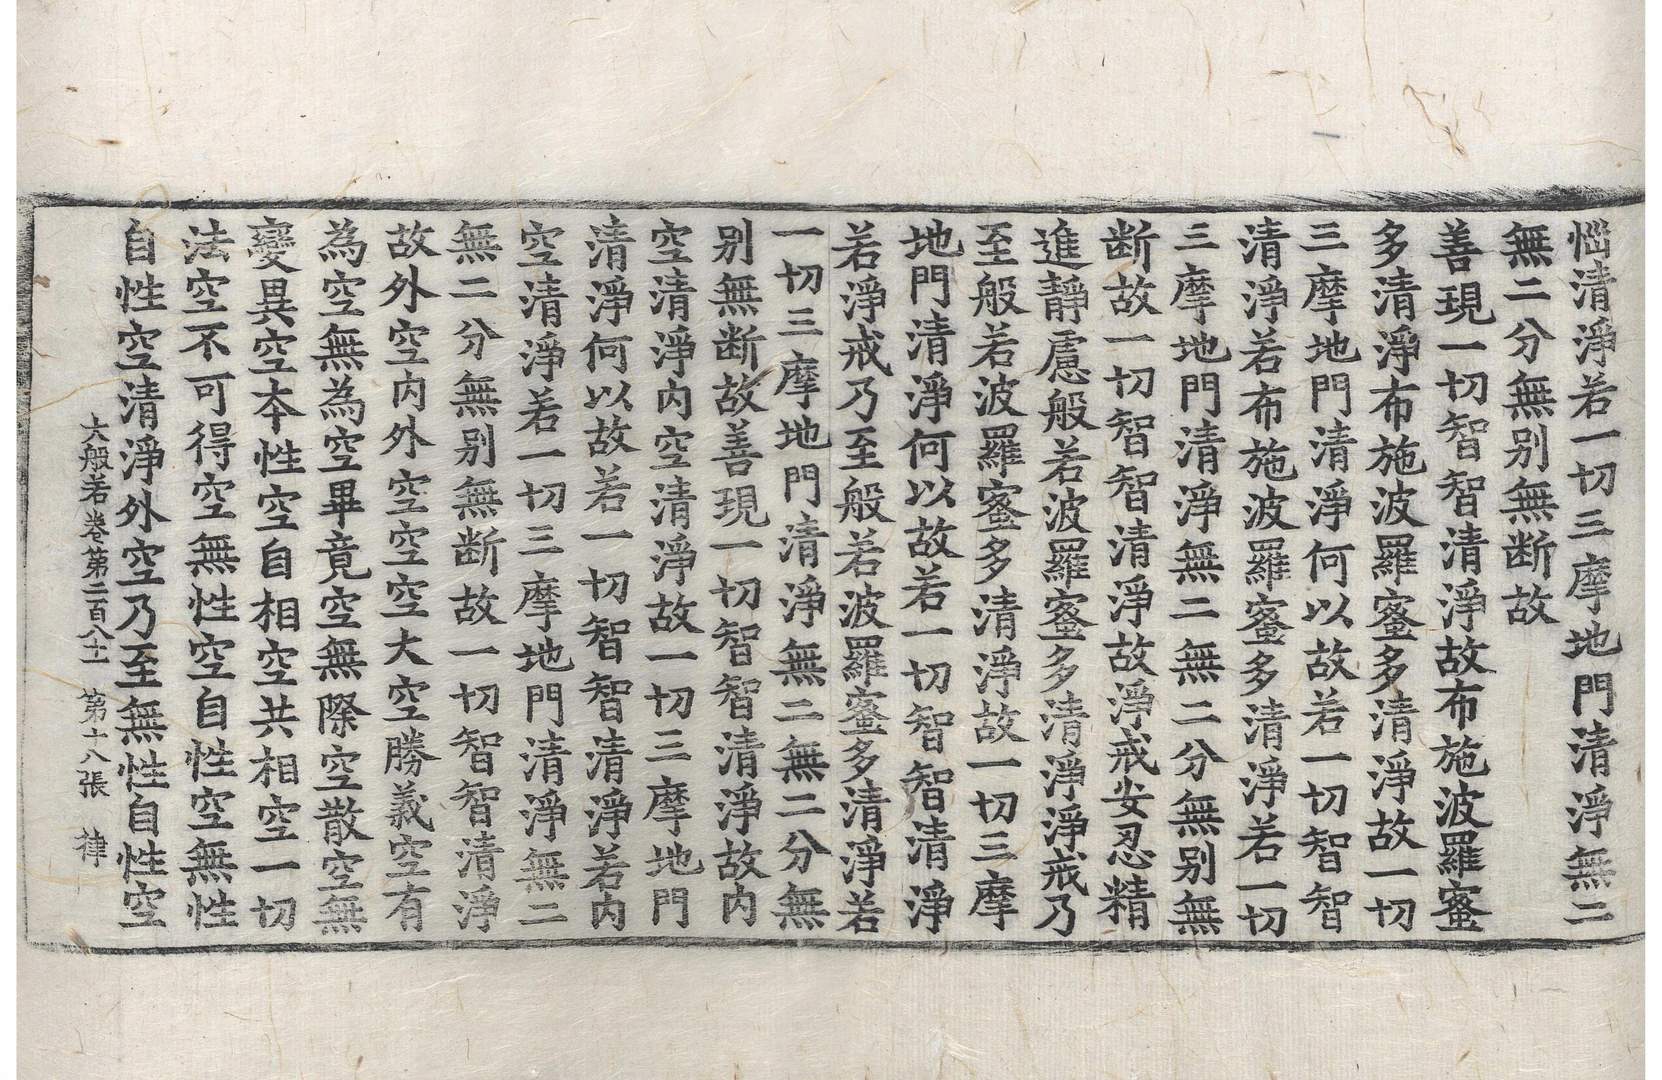 惱清淨若一切三摩地門清淨無二
無二分無別無断故
善現一切智智清淨故布施波羅蜜
多清淨布施波羅蜜多清淨故一切
三摩地門清淨何以故若一切智智
清淨若布施波羅蜜多清淨若一切
三摩地門清淨無二無二分無別無
断故一切智智清淨故淨戒安忍精
進靜慮般若波羅蜜多清淨淨戒乃
至般若波羅蜜多清淨故一切三摩
地門清淨何以故若一切智智清淨
若淨戒乃至般若波羅蜜多清淨若
一切三摩地門清淨無二無二分無
別無断故善現一切智智清淨故內
空清淨內空清淨故一切三摩地門
清淨何以故若一切智智清淨若內
空清淨若一切三摩地門清淨無二
無二分無別無断故一切智智清淨
故外空內外空空空大空勝義空有
為空無為空畢竟空無際空散空無
變異空本性空自相空共相空一切
法空不可得空無性空自性空無性
自性空清淨外空乃至無性自性空
大般若卷第二百八十一 第十八張 律